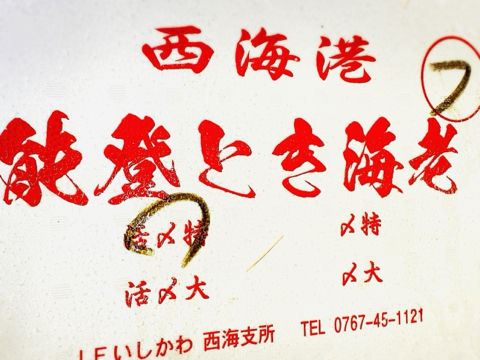 西海港
フ
能登とき海老
活〆特 〆特
活〆大 〆大
JFいしかわ 西海支所 TEL 0767-45-1121